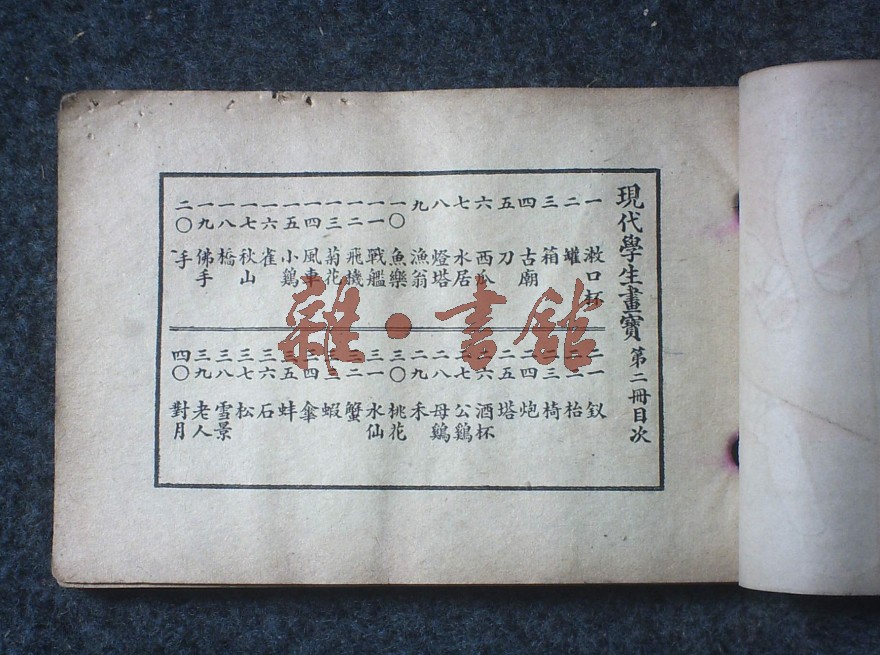 現代學生畫寶 第二冊目次
一 漱口杯
二 罐
三 箱
四 古廟
五 刀
六 西瓜
七 水居
八 燈塔
九 漁翁
一〇 魚樂
一一 戰艦
一二 飛機
一三 菊花
一四 風車
一五 小鷄
一六 雀
一七 秋山
一八 橋
一九 佛手
二〇 手
二一 釵
二二 枱
二三 椅
二四 炮
二五 塔
二六 酒杯
二七 公鷄
二八 母鷄
二九 禾
三〇 桃花
三一 水仙
三二 蟹
三三 蝦
三四 傘
三五 蚌
三六 石
三七 松
三八 雪景
三九 老人
四〇 對月
雜·書館